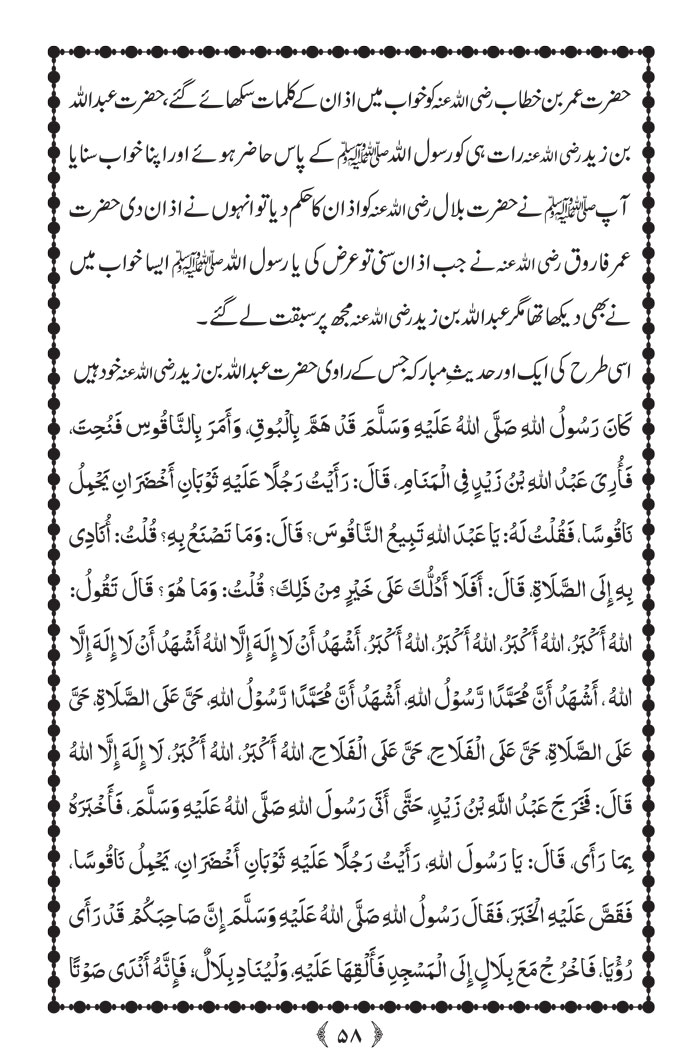 حضرت عمر بن خطاب رضی اللہ عنہ کو خواب میں اذان کے کلمات سکھائے گئے، حضرت عبداللہ
بن زید رضی اللہ عنہ رات ہی کو رسول اللہ ﷺ کے پاس حاضر ہوئے اور اپنا خواب سنایا
آپ ﷺ نے حضرت بلال رضی اللہ عنہ کو اذان کا حکم دیا تو انہوں نے اذان دی حضرت
عمر فاروق رضی اللہ عنہ نے جب اذان سنی تو عرض کی یا رسول اللہ ﷺ ایسا خواب میں
نے بھی دیکھا تھا مگر عبداللہ بن زید رضی اللہ عنہ مجھ پر سبقت لے گئے۔
اسی طرح کی ایک اور حدیثِ مبارکہ جس کے راوی حضرت عبداللہ بن زید رضی اللہ عنہ خود ہیں
كَانَ رَسُولُ اللهِ صَلَّى اللهُ عَلَيْهِ وَسَلَّمَ قَدْ هَمَّ بِالْبُوقِ، وَأَمَرَ بِالنَّاقُوسِ فَنُحِتَ،
فَأُرِيَ عَبْدُ اللهِ بْنُ زَيْدٍ فِي الْمَنَامِ، قَالَ: رَأَيْتُ رَجُلًا عَلَيْهِ ثَوْبَانِ أَخْضَرَانِ يَحْمِلُ
نَاقُوسًا، فَقُلْتُ لَهُ: يَا عَبْدَ اللهِ تَبِيعُ النَّاقُوسَ؟ قَالَ: وَمَا تَصْنَعُ بِهِ؟ قُلْتُ: أُنَادِي
بِهِ إِلَى الصَّلَاةِ، قَالَ: أَفَلَا أَدُلُّكَ عَلَى خَيْرٍ مِنْ ذَلِكَ؟ قُلْتُ: وَمَا هُوَ؟ قَالَ تَقُولُ:
اللهُ أَكْبَرُ، اللهُ أَكْبَرُ، اللهُ أَكْبَرُ، اللهُ أَكْبَرُ، أَشْهَدُ أَنْ لَا إِلَهَ إِلَّا اللهُ أَشْهَدُ أَنْ لَا إِلَهَ إِلَّا
اللهُ، أَشْهَدُ أَنَّ مُحَمَّدًا رَّسُوْلُ اللهِ، أَشْهَدُ أَنَّ مُحَمَّدًا رَّسُوْلُ اللهِ، حَيَّ عَلَى الصَّلَاةِ، حَيَّ
عَلَى الصَّلَاةِ، حَيَّ عَلَى الْفَلَاحِ، حَيَّ عَلَى الْفَلَاحِ، اللهُ أَكْبَرُ، اللهُ أَكْبَرُ، لَا إِلَهَ إِلَّا اللهُ
قَالَ: فَخَرَجَ عَبْدُ اللَّهِ بْنُ زَيْدٍ، حَتَّى أَتَى رَسُولَ اللهِ صَلَّى اللهُ عَلَيْهِ وَسَلَّمَ، فَأَخْبَرَهُ
بِمَا رَأَى، قَالَ: يَا رَسُولَ اللهِ، رَأَيْتُ رَجُلًا عَلَيْهِ ثَوْبَانِ أَخْضَرَانِ، يَحْمِلُ نَاقُوسًا،
فَقَصَّ عَلَيْهِ الْخَبَرَ، فَقَالَ رَسُولُ اللهِ صَلَّى اللهُ عَلَيْهِ وَسَلَّمَ إِنَّ صَاحِبَكُمْ قَدْ رَأَى
رُؤْيَا، فَاخْرُجْ مَعَ بِلَالٍ إِلَى الْمَسْجِدِ فَأَلْقِهَا عَلَيْهِ، وَلْيُنَادِ بِلَالٌ، فَإِنَّهُ أَنْدَى صَوْتًا
﴿ ۵۸ ﴾